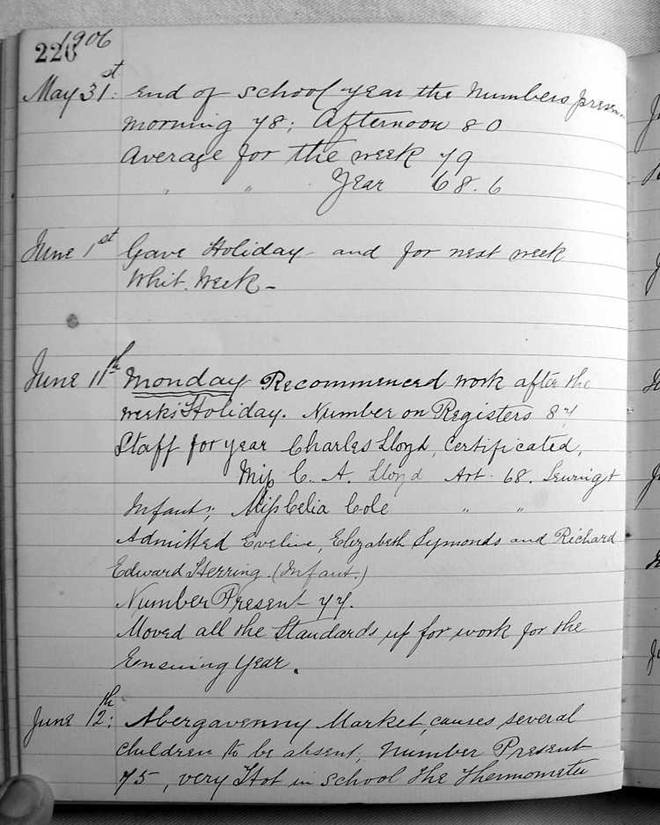 220 1906
May 31st: End of School Year the Numbers presen
morning 78; Afternoon 80
Average for the week 79
" " Year 68.6
June 1st Gave Holiday and for next week
Whit. Week -
June 11th Monday Recommenced work after the
weeks Holiday. Number on Registers 87
Staff for year Charles Lloyd, Certificated,
Miss C. A. Lloyd Art. 68. Sewing &
Infants; Miss Celia Cole " "
Admitted Eveline, Elizabeth Symonds and Richard
Edward Herring. (Infant.)
Number Present 77.
Moved all the Standards up for work for the
Ensuing Year.
June 12th: Abergavenny Market, causes several
children to be absent, Number Present
75, very Hot in school the Thermometer